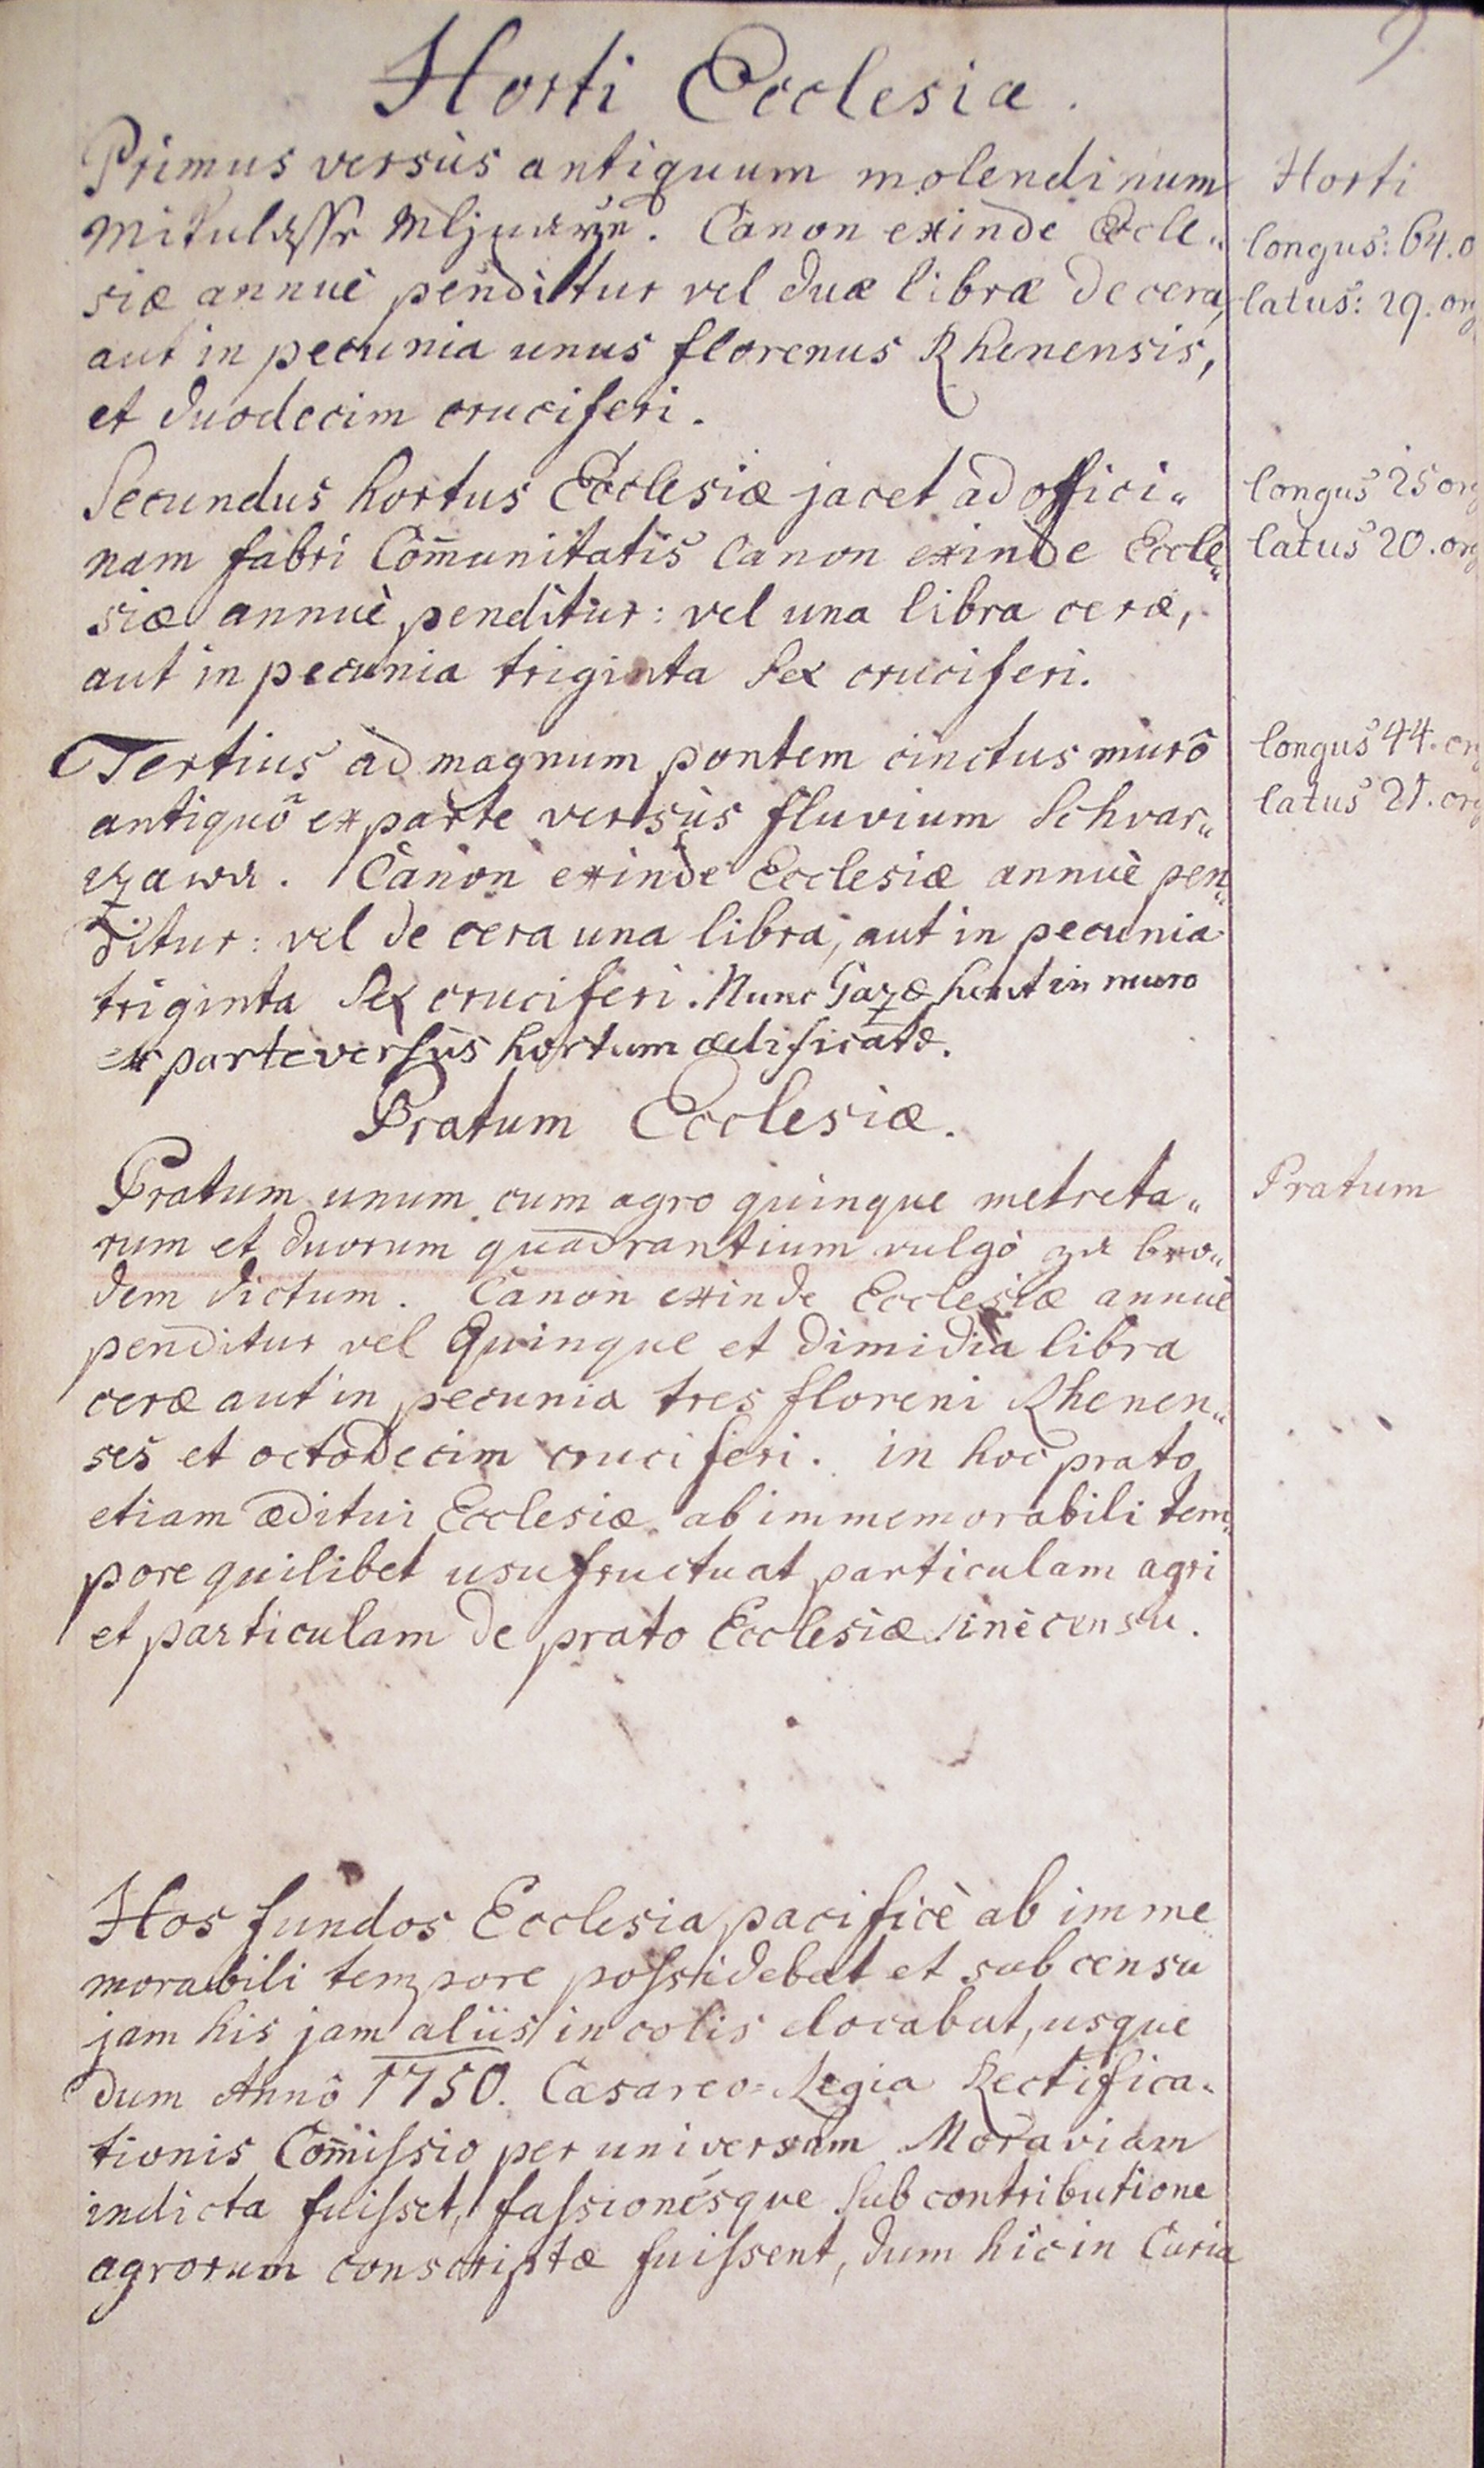 Horti Ecclesiæ.
Primus versùs antiquum molendinum
Horti
Canon exinde Eccle„
longus: 64. o
siæ annuè penditur vel duæ libræ de cera,
latus: 29. org
aut in pecunia unus florenus Rhenensis,
et duodecim cruciferi.
Secundus hortus Ecclesiæ jacet ad offici„
longus 25 org
nam fabri Com̄unitatis Canon exinde Eccle„
latus 20. org
siæ annuè penditur: vel una libra ceræ,
aut in pecunia triginta sex cruciferi.
Tertius ad magnum pontem cinctus murô
longus 44. org
antiquô ex parte versùs fluvium Schvar„
latus 21. org
zawa. Canon exinde Ecclesiæ annuè pen„
ditur: vel de cera una libra, aut in pecunia
triginta sex cruciferi. Nunc in muro
ex parte versùs hortum ædificatæ.
Pratum Ecclesiæ.
Pratum unum cum agro quinque metreta„
Pratum
rum et duorum quadrantium vulgò za bro„
dem dictum. Canon exinde Ecclesiæ annuè
penditur vel Quinque et dimidia libra
ceræ aut in pecunia tres floreni Rhenen„
ses et octodecim cruciferi. in hoc prato
etiam æditui Ecclesiæ ab immemorabili tem„
pore quilibet usufructuat particulam agri
et particulam de prato Ecclesiæ sinè censu.
Hos fundos Ecclesia pacificè ab imme
morabili tempore possidebat et sub censu
jam his jam aliis incolis elocabat, usque
dum Annô 1750. Cæsareo=Regia Rectifica„
tionis Com̄issio per universam Moraviam
indicta fuisset, fassionésque sub contributione
agrorum conscriptæ fuissent, dum hic in Curia